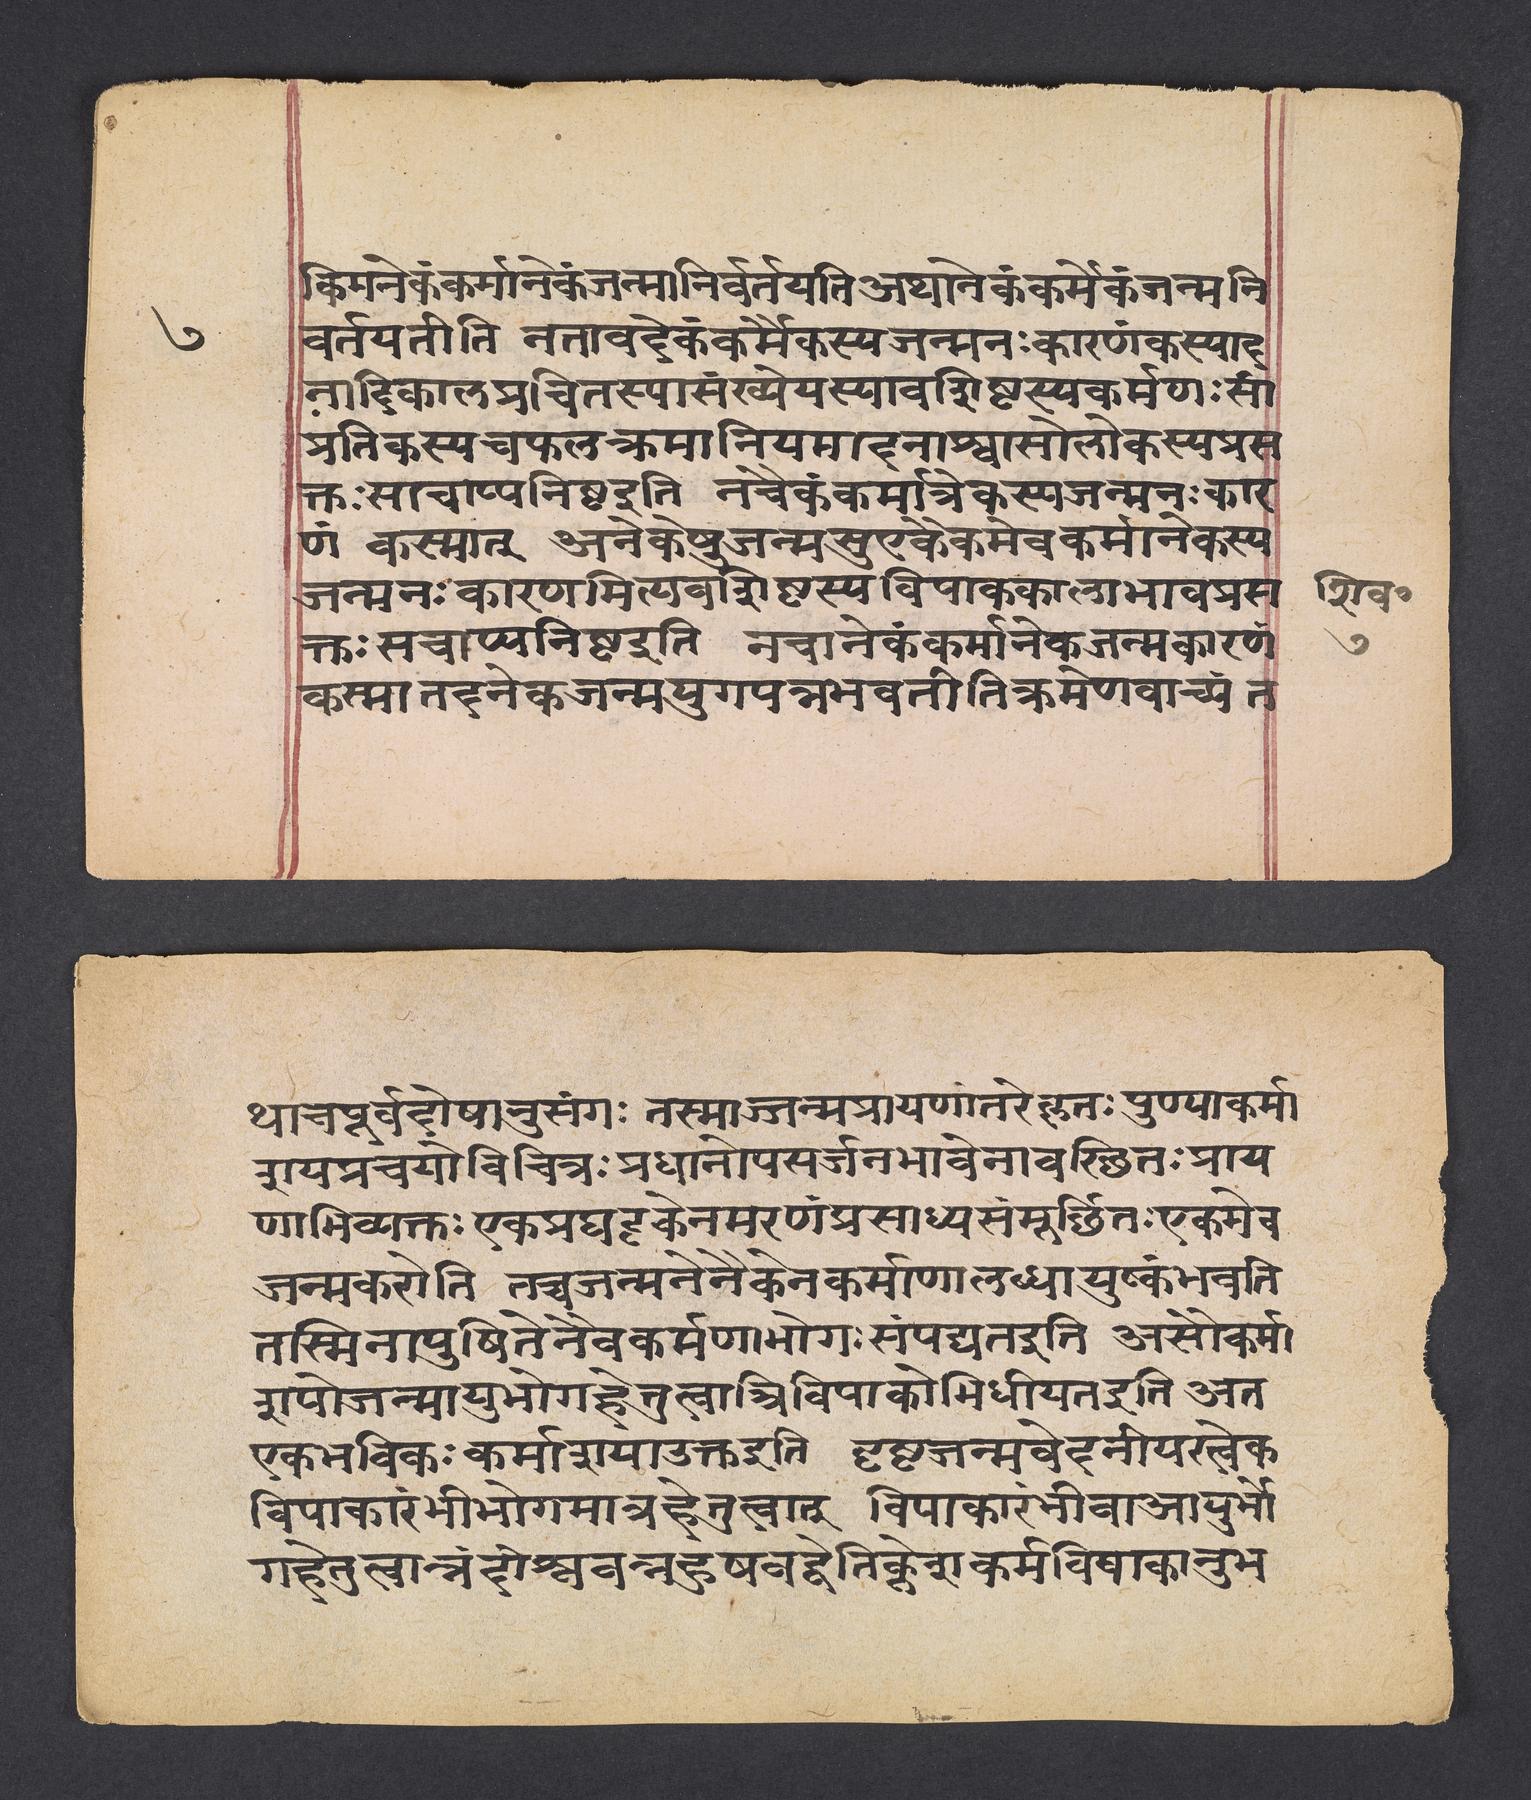 किमनेकंकर्मानेकंजन्मानिर्वर्तयतिअथानेकंकर्मैकंजन्मनि
७
वर्तयतीति नतावदेकंकर्मैकस्यजन्मनःकारणंकस्माद
नादिकालप्रचितस्यासंख्येयस्यावशिष्टस्यकर्मणःसां
प्रतिकस्यचफलक्रमानियमादनाश्वासोलोकस्यप्रस
क्तःसाचाप्यनिष्टइति नचैकंकर्मानेकस्यजन्मनःकार
णं कस्मात् अनेकेषुजन्मसुएकैकमेवकर्मानेकस्य
जन्मनःकारणमित्यवशिष्टस्यविपाककालाभावप्रस
शिव॰
क्तःसचाप्यनिष्टइति नचानेकंकर्मानेकजन्मकारणं
७
कस्मातदनेकजन्मयुगपन्नभवतीतिक्रमेणवाच्यं त
थाचपूर्वदोषानुसंगः तस्माज्जन्मप्रायणांतरेकृतः पुण्याकर्मा
शयप्रचयोविचित्रःप्रधानोपसर्जनभावेनावस्छितःप्राय
णाभिव्यक्तःएकप्रघट्टकेनमरणंप्रसाध्यसंमूर्छितःएकमेव
जन्मकरोति तच्चजन्मनेनैकेनकर्माणालब्धायुष्कंभवति
तस्मिनायुषितेनैवकर्मणाभोगःसंपद्यतइति असौकर्मा
शयोजन्मायुभोगहेतुत्वात्रिविपाकोभिधीयतइति अत
एकभविकःकर्माशयाउक्तइति दृष्टजन्मवेदनीयस्त्वेक
विपाकारंभीभोगमात्रहेतुत्वात् विपाकारंभीवाआयुर्भो
गहेतुत्वान्नंदीश्वरवन्नहुषवद्वेतिक्लेशकर्मविपाकानुभ